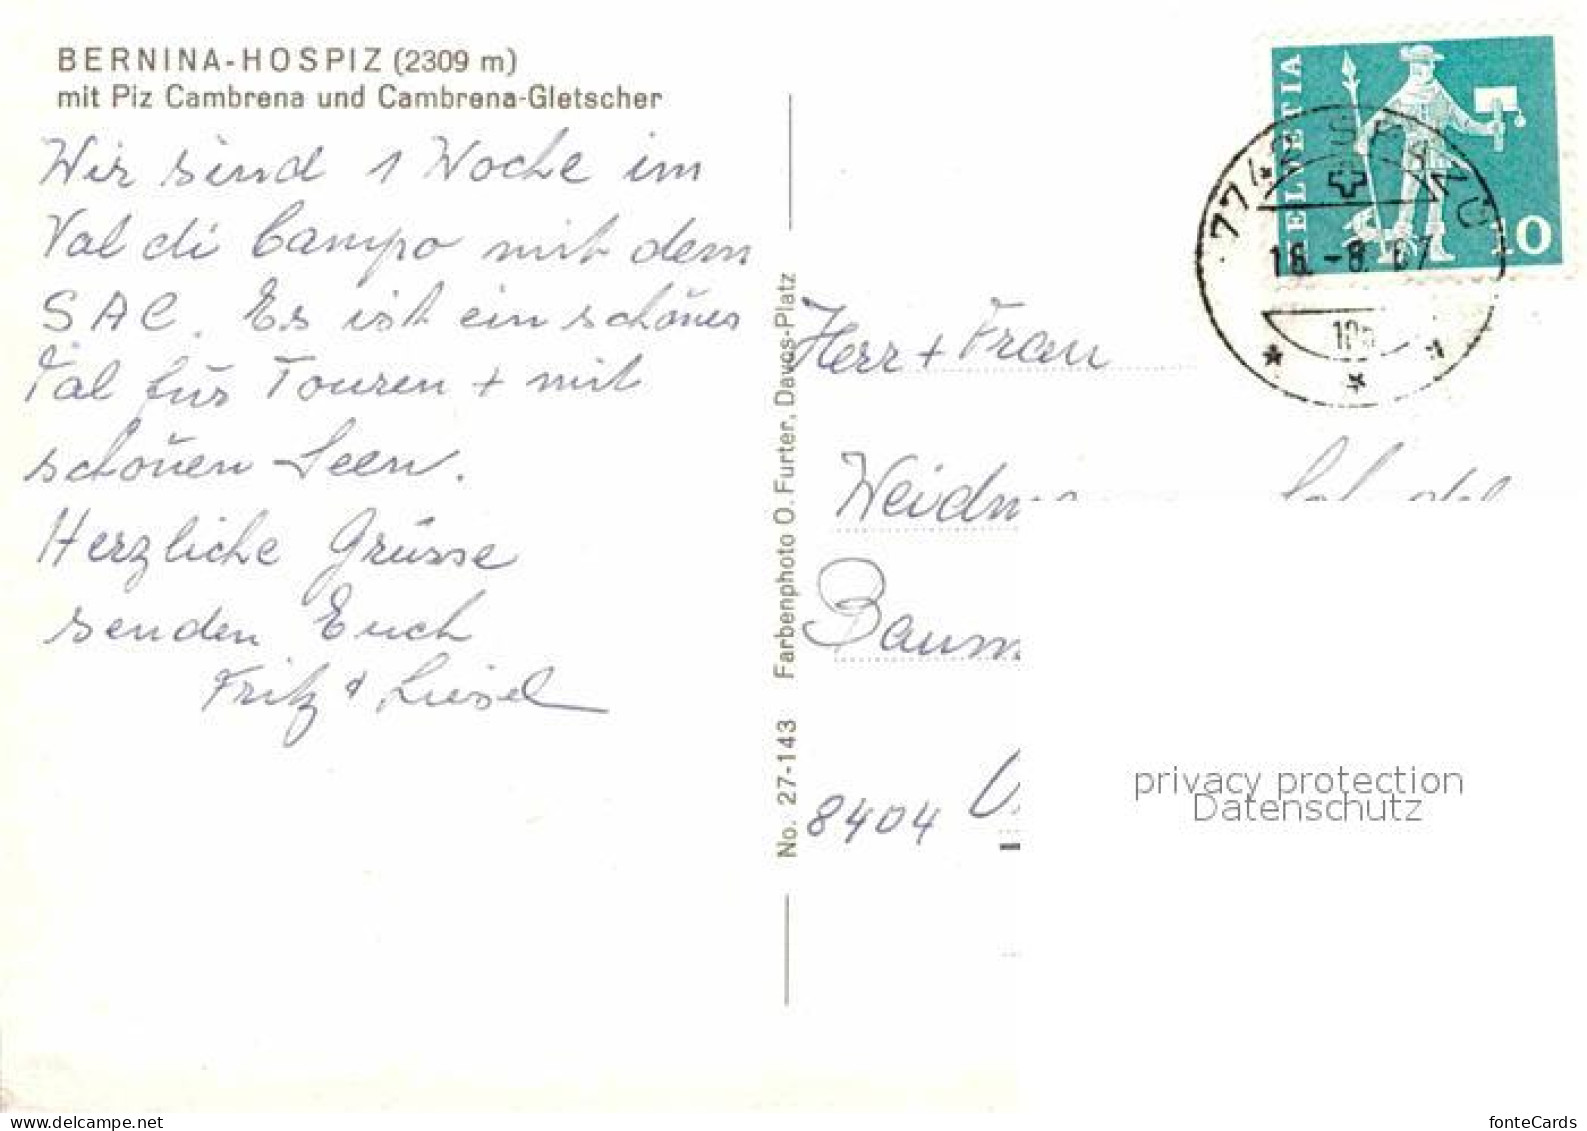 BERNINA-HOSPIZ (2309 m)
mit Piz Cambrena und Cambrena-Gletscher
Wir sind 1 Woche im
Val di Campo mit dem
SAC. Es ist ein schönes
Tal für Touren + mit
schönen Seen.
Herzliche Grüsse
senden Euch
Fritz & Liesel
No. 27-143 Farbenphoto O. Furter, Davos-Platz
HELVETIA
10
Herr + Frau
8404
privacy protection
Datenschutz
www.delcampe.net
fonteCards